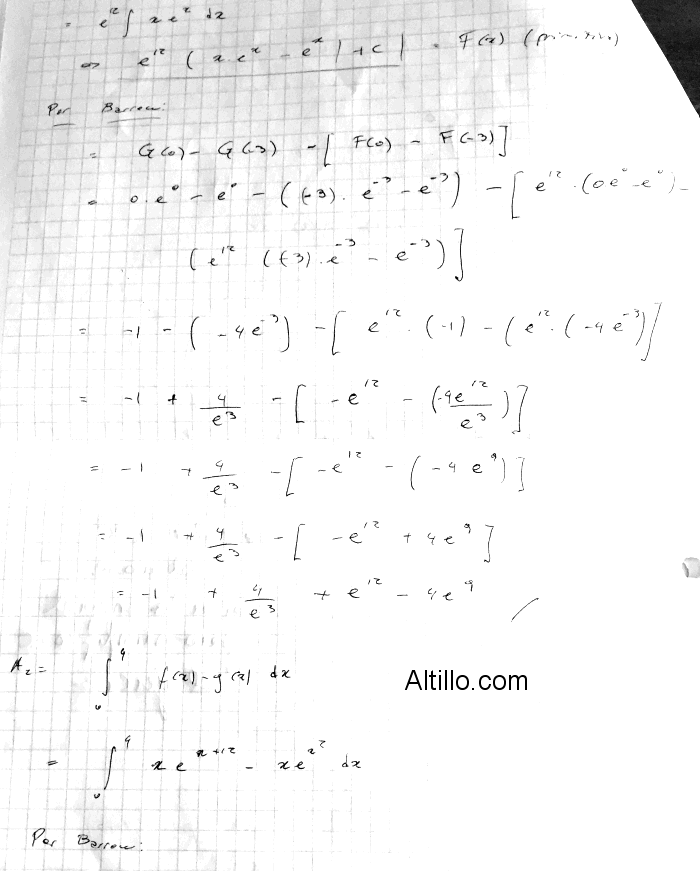 = e^12 ∫ x e^x dx
⇒ e^12 (x.e^x - e^x) + C | = F(x) (primitiva)
Por Barrow:
= G(0) - G(-3) - [ F(0) - F(-3) ]
= 0.e^0 - e^0 - ((-3). e^-3 - e^-3) - [ e^12 . (0e^0 - e^0) -
(e^12 (-3).e^-3 - e^-3) ]
= -1 - ( -4e^-3 ) - [ e^12 . (-1) - (e^12 . (-4 e^-3) ]
= -1 + 4/e^3 - [ -e^12 - (-4e^12/e^3) ]
= -1 + 4/e^3 - [ -e^12 - ( -4 e^9 ) ]
= -1 + 4/e^3 - [ -e^12 + 4e^9 ]
= -1 + 4/e^3 + e^12 - 4e^9
A2 = ∫_0^4 f(x) - g(x) dx
Altillo.com
= ∫_0^4 x e^x+12 - x e^x^2 dx
Por Barrow: